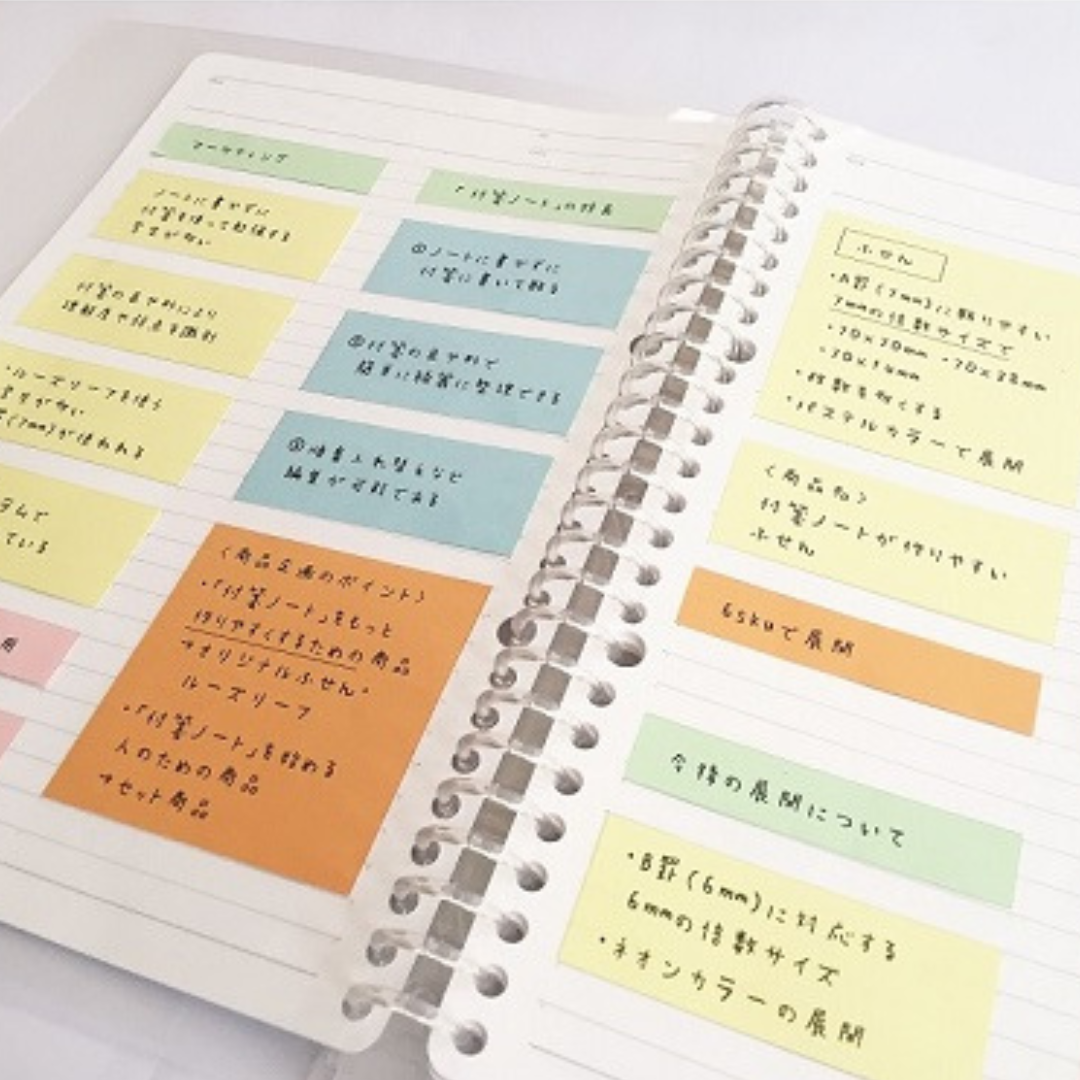 マーケティング
ノートに書かずに
付箋を使って勉強する
学生が多い
付箋の色分けにより
理解度や弱点を識別
・ルーズリーフを使う
学生が多い
(7mm)が使われる
ている
用
「付箋ノート」の特長
①ノートに書かずに
付箋に書いて貼る
②付箋の色分けで
簡単に綺麗に整理できる
③順番入れ替えなど
編集が可能である
〈商品企画のポイント〉
・「付箋ノート」をもっと
作りやすくするための商品
→オリジナルふせん・
ルーズリーフ
・「付箋ノート」を始める
人のための商品
→セット商品
ふせん
・A罫(7mm)に貼りやすい
7mmの倍数サイズで
・70×70mm ・70×28mm
・70×14mm
・枚数を多くする
・パステルカラーで展開
〈商品名〉
付箋ノートが作りやすい
ふせん
6skuで展開
今後の展開について
・B罫(6mm)に対応する
6mmの倍数サイズ
・ネオンカラーの展開